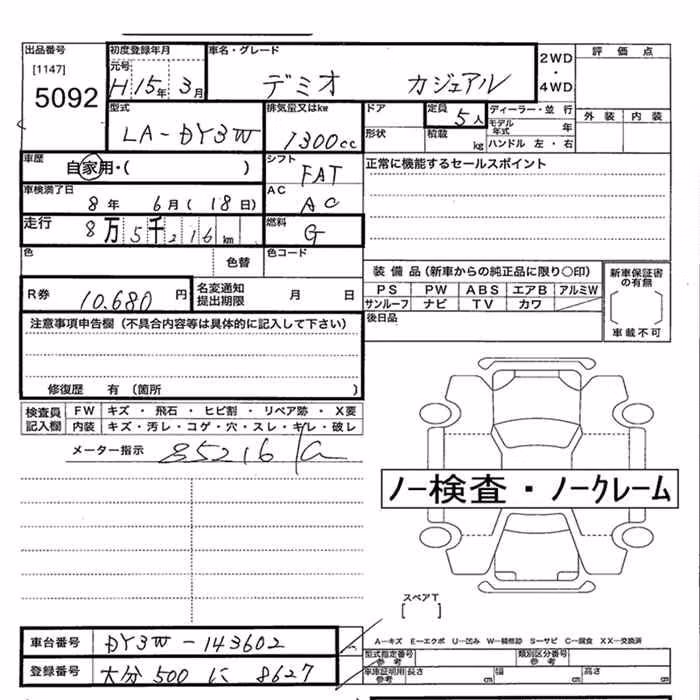 出品番号 [1147] 5092
初度登録年月 元号 H 15年 3月
車名・グレード デミオ カジュアル
2WD・4WD
評価点
外装 内装
型式 LA-DY3W
排気量又はkw 1300cc
ドア
形状
定員 5人
積載 kg
ディーラー・並行
モデル年式 年
ハンドル 左・右
車歴 自家用・( )
シフト FAT
正常に機能するセールスポイント
車検満了日 8年 6月 (18日)
AC AC
走行 8万5千216km
燃料 G
色 色替
色コード
装備品(新車からの純正品に限り○印)
PS PW ABS エアB アルミW
サンルーフ ナビ TV カワ
新車保証書の有無
車載不可
R券 10.680円
名変通知提出期限 月 日
後日品
注意事項申告欄(不具合内容等は具体的に記入して下さい)
修復歴 有(箇所 )
検査員記入欄
FW キズ・飛石・ヒビ割・リペア跡・X要
内装 キズ・汚レ・コゲ・穴・スレ・キレ・破レ
メーター指示 85216
ノー検査・ノークレーム
スペアT [ ]
車台番号 DY3W-143602
登録番号 大分 500 に 8627
A…キズ E…エクボ U…凹み W…補修跡 S…サビ C…腐食 XX…交換済
型式指定番号 参考
類別区分番号 参考
車庫証明用参考 長さ cm 幅 cm 高さ cm